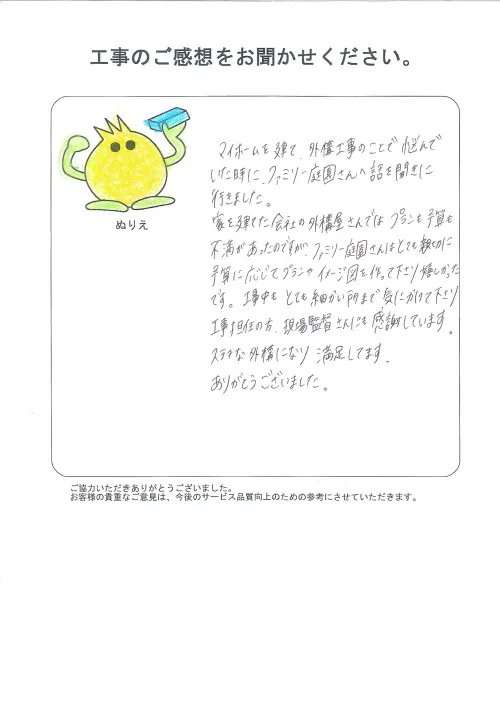 工事のご感想をお聞かせください。
ぬりえ
マイホームを建て、外構工事のことで悩んで
いた時に、ファミリー庭園さんへ話を聞きに
行きました。
家を建てた会社の外構屋さんでは プランも予算も
不満があったのですが、ファミリー庭園さんはとても親切に
予算に応じてプランや イメージ図を作って下さり 嬉しかった
です。工事中も とても細かい所まで 気にかけて下さり
工事担任の方、現場監督さんにも感謝しています。
ステキな外構になり 満足してます。
ありがとうございました。
ご協力いただきありがとうございました。
お客様の貴重なご意見は、今後のサービス品質向上のための参考にさせていただきます。